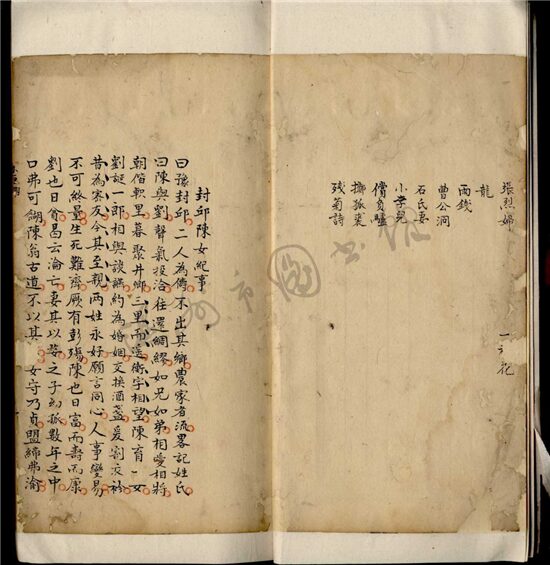 張烈婦
龍
雨錢
曹公洞
石氏妻
小李兒
償負驢
擲狐裘
殘菊詩
封邱陳女紀事
曰豫封邱二人為儔不出其鄉農家者流畧記姓氏
曰陳與劉聲氣投洽往還綢繆如兄如弟相愛相將
朝偕軟里暮聚井鄉三里而遙衡宇相望陳育一女
劉誕一郎相與談讌約為婚姻交換酒盞爰割衣衿
昔為寮友今其至親兩姓永好願言同心人事變易
不可終量生死難齊厥有彭殤陳也日富而壽而康
劉也日貧曷云淪亡妻其以嫠之子為孤數年之中
口弗可餬陳翁古道不以其 女守乃貞盟締弗渝